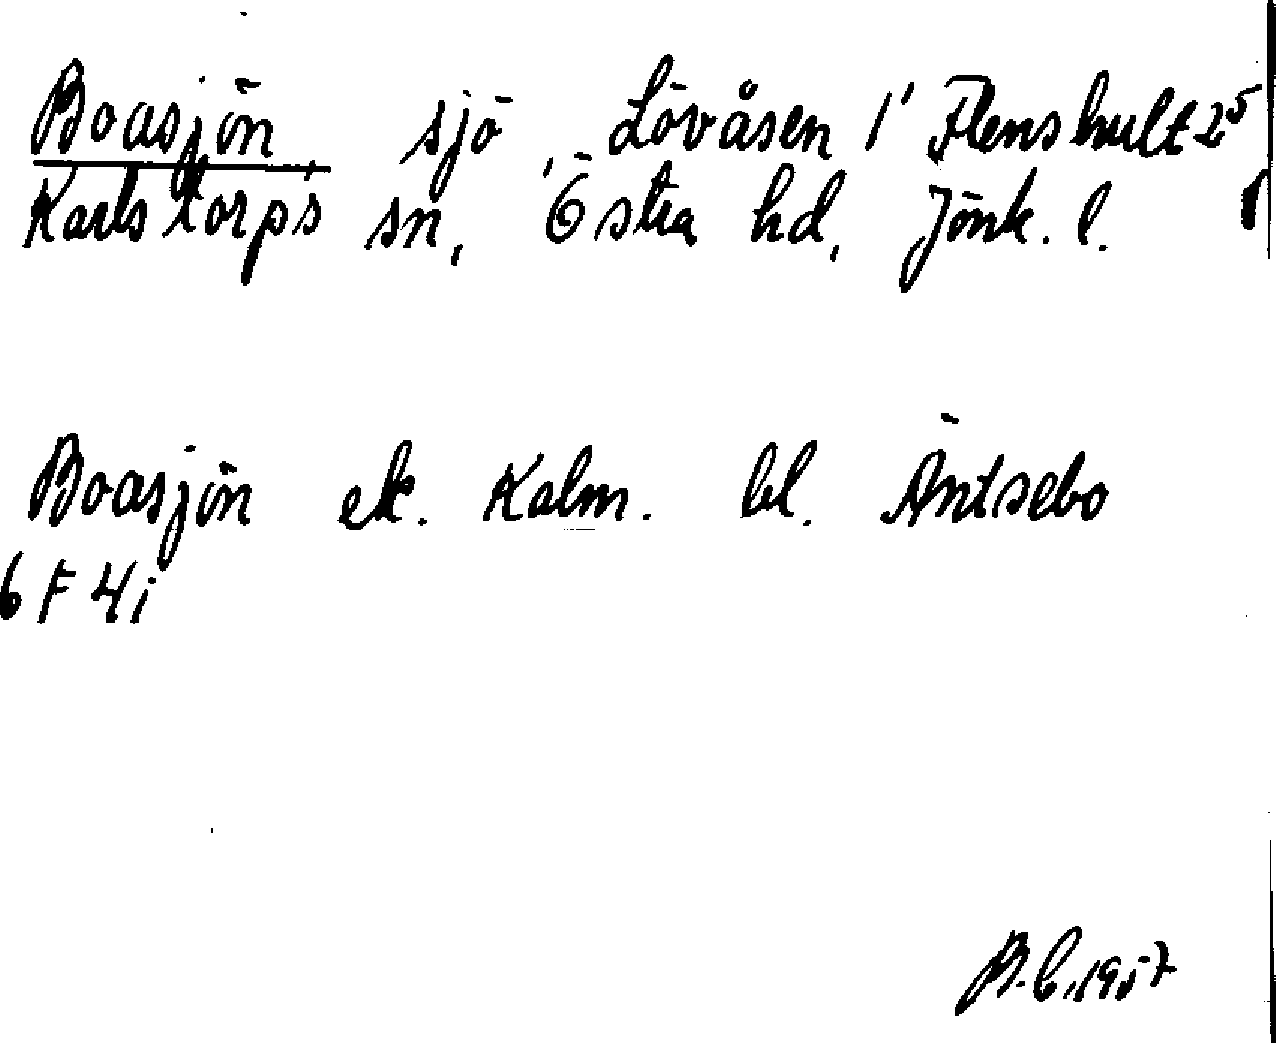 Boasjön, sjö, Lövåsen 1' Flenshult 2⁵
Karlstorps sn, Östra hd, Jönk. l.
Boasjön ek. Kalm. bl. Äntsebo
6 F 4i
B.C. 1957